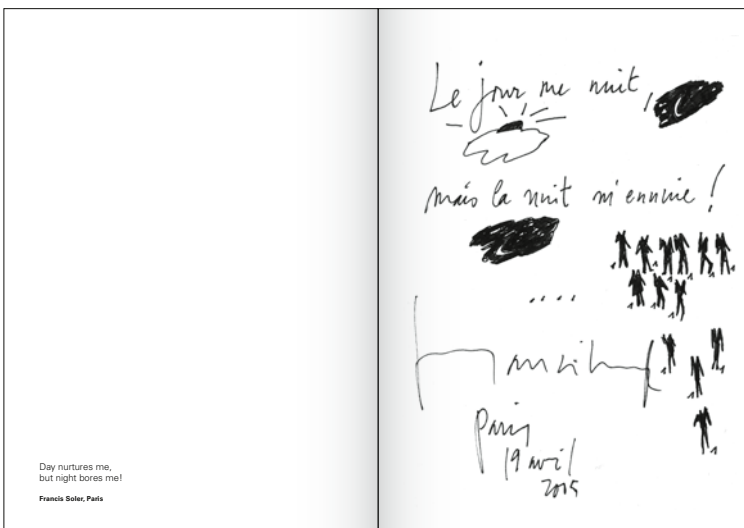 Day nurtures me,
but night bores me!
Francis Soler, Paris
Le jour me nuit,
mais la nuit m'ennuie!
....
Paris
19 avril
2005